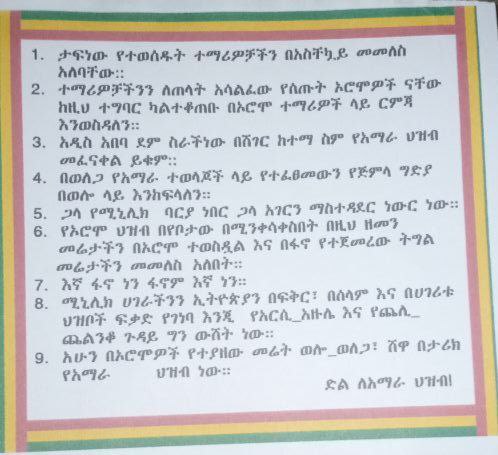 1. ታፍነው የተወሰዱት ተማሪዎቻችን በአስቸኳይ መመለስ
አለባቸው::
2. ተማሪዎቻችንን ለጠላት አሳልፈው የሰጡት ኦሮሞዎች ናቸው
ከዚህ ተግባር ካልተቆጠቡ በኦሮሞ ተማሪዎች ላይ ርምጃ
እንወስዳለን::
3. አዲስ አበባ ደም ስራችነው በሸገር ከተማ ስም የአማራ ህዝብ
መፈናቀል ይቁም::
4. በወለጋ የአማራ ተወላጆች ላይ የተፈፀመውን የጅምላ ግድያ
በወሎ ላይ እንከፍላለን::
5. ጋላ የሚኒሊክ ባርያ ነበር ጋላ አገርን ማስተዳደር ነውር ነው::
6. የኦሮሞ ህዝብ በየቦታው በሚንቀሳቀስበት በዚህ ዘመን
መሬታችን በኦሮሞ ተወስዷል እና በፋኖ የተጀመረው ትግል
መሬታችን መመለስ አለበት::
7. እኛ ፋኖ ነን ፋኖም እኛ ነን::
8. ሚኒሊክ ሀገራችንን ኢትዮጵያን በፍቅር፣ በሰላም እና በሀገሪቱ
ህዝቦች ፍቃድ የገነባ እንጂ የአርሲ_አዙሌ እና የጨሊ_
ጨልንቆ ጉዳይ ግን ውሸት ነው::
9. አሁን በኦሮሞዎች የተያዘው መሬት ወሎ_ወለጋ፣ ሸዋ በታሪክ
የአማራ ህዝብ ነው::
ድል ለአማራ ህዝብ!